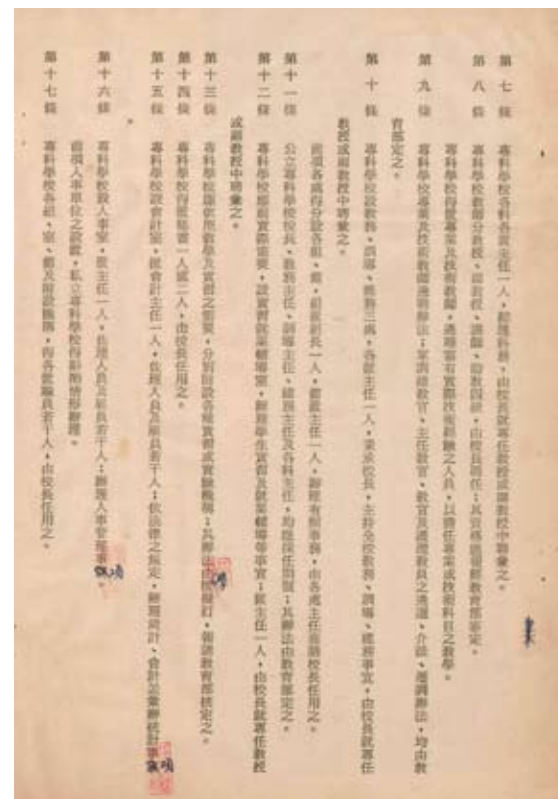 第七條　專科學校各科各置主任一人，綜理科務，由校長就專任教授或副教授中聘兼之。
第八條　專科學校教師分教授、副教授、講師、助教四級，由校長聘任；其資格應報經教育部審定。
專科學校得置專業及技術教師，遴聘富有實際技術經驗之人員，以擔任專業或技術科目之教學。
第九條　專科學校專業及技術教師遴聘辦法；軍訓總教官、主任教官、教官及護理教員之遴選、介派、遷調辦法，均由教
育部定之。
第十條　專科學校設教務、訓導、總務三處，各置主任一人，秉承校長，主持全校教務、訓導、總務事宜，由校長就專任
教授或副教授中聘兼之。
前項各處得分設各組、館，組置組長一人，館置主任一人，辦理有關事務，由各處主任商請校長任用之。
第十一條　公立專科學校校長、教務主任、訓導主任、總務主任及各科主任，均應採任期制；其辦法由教育部定之。
第十二條　專科學校應視實際需要，設實習就業輔導室，辦理學生實習及就業輔導等事宜；置主任一人，由校長就專任教授
或副教授中聘兼之。
第十三條　專科學校應依照教學及實習之需要，分別附設各種實習或實驗機構；其辦法由校擬訂，報請教育部核定之。
第十四條　專科學校得置秘書一人或二人，由校長任用之。
第十五條　專科學校設會計室，置會計主任一人，佐理人員及雇員若干人；依法律之規定，辦理歲計、會計並兼辦統計事
第十六條　專科學校設人事室，置主任一人，佐理人員及雇員若干人；辦理人事管理事
前項人事單位之設置，私立專科學校得斟酌情形辦理。
第十七條　專科學校各組、室、館及附設機構，得各置職員若干人，由校長任用之。